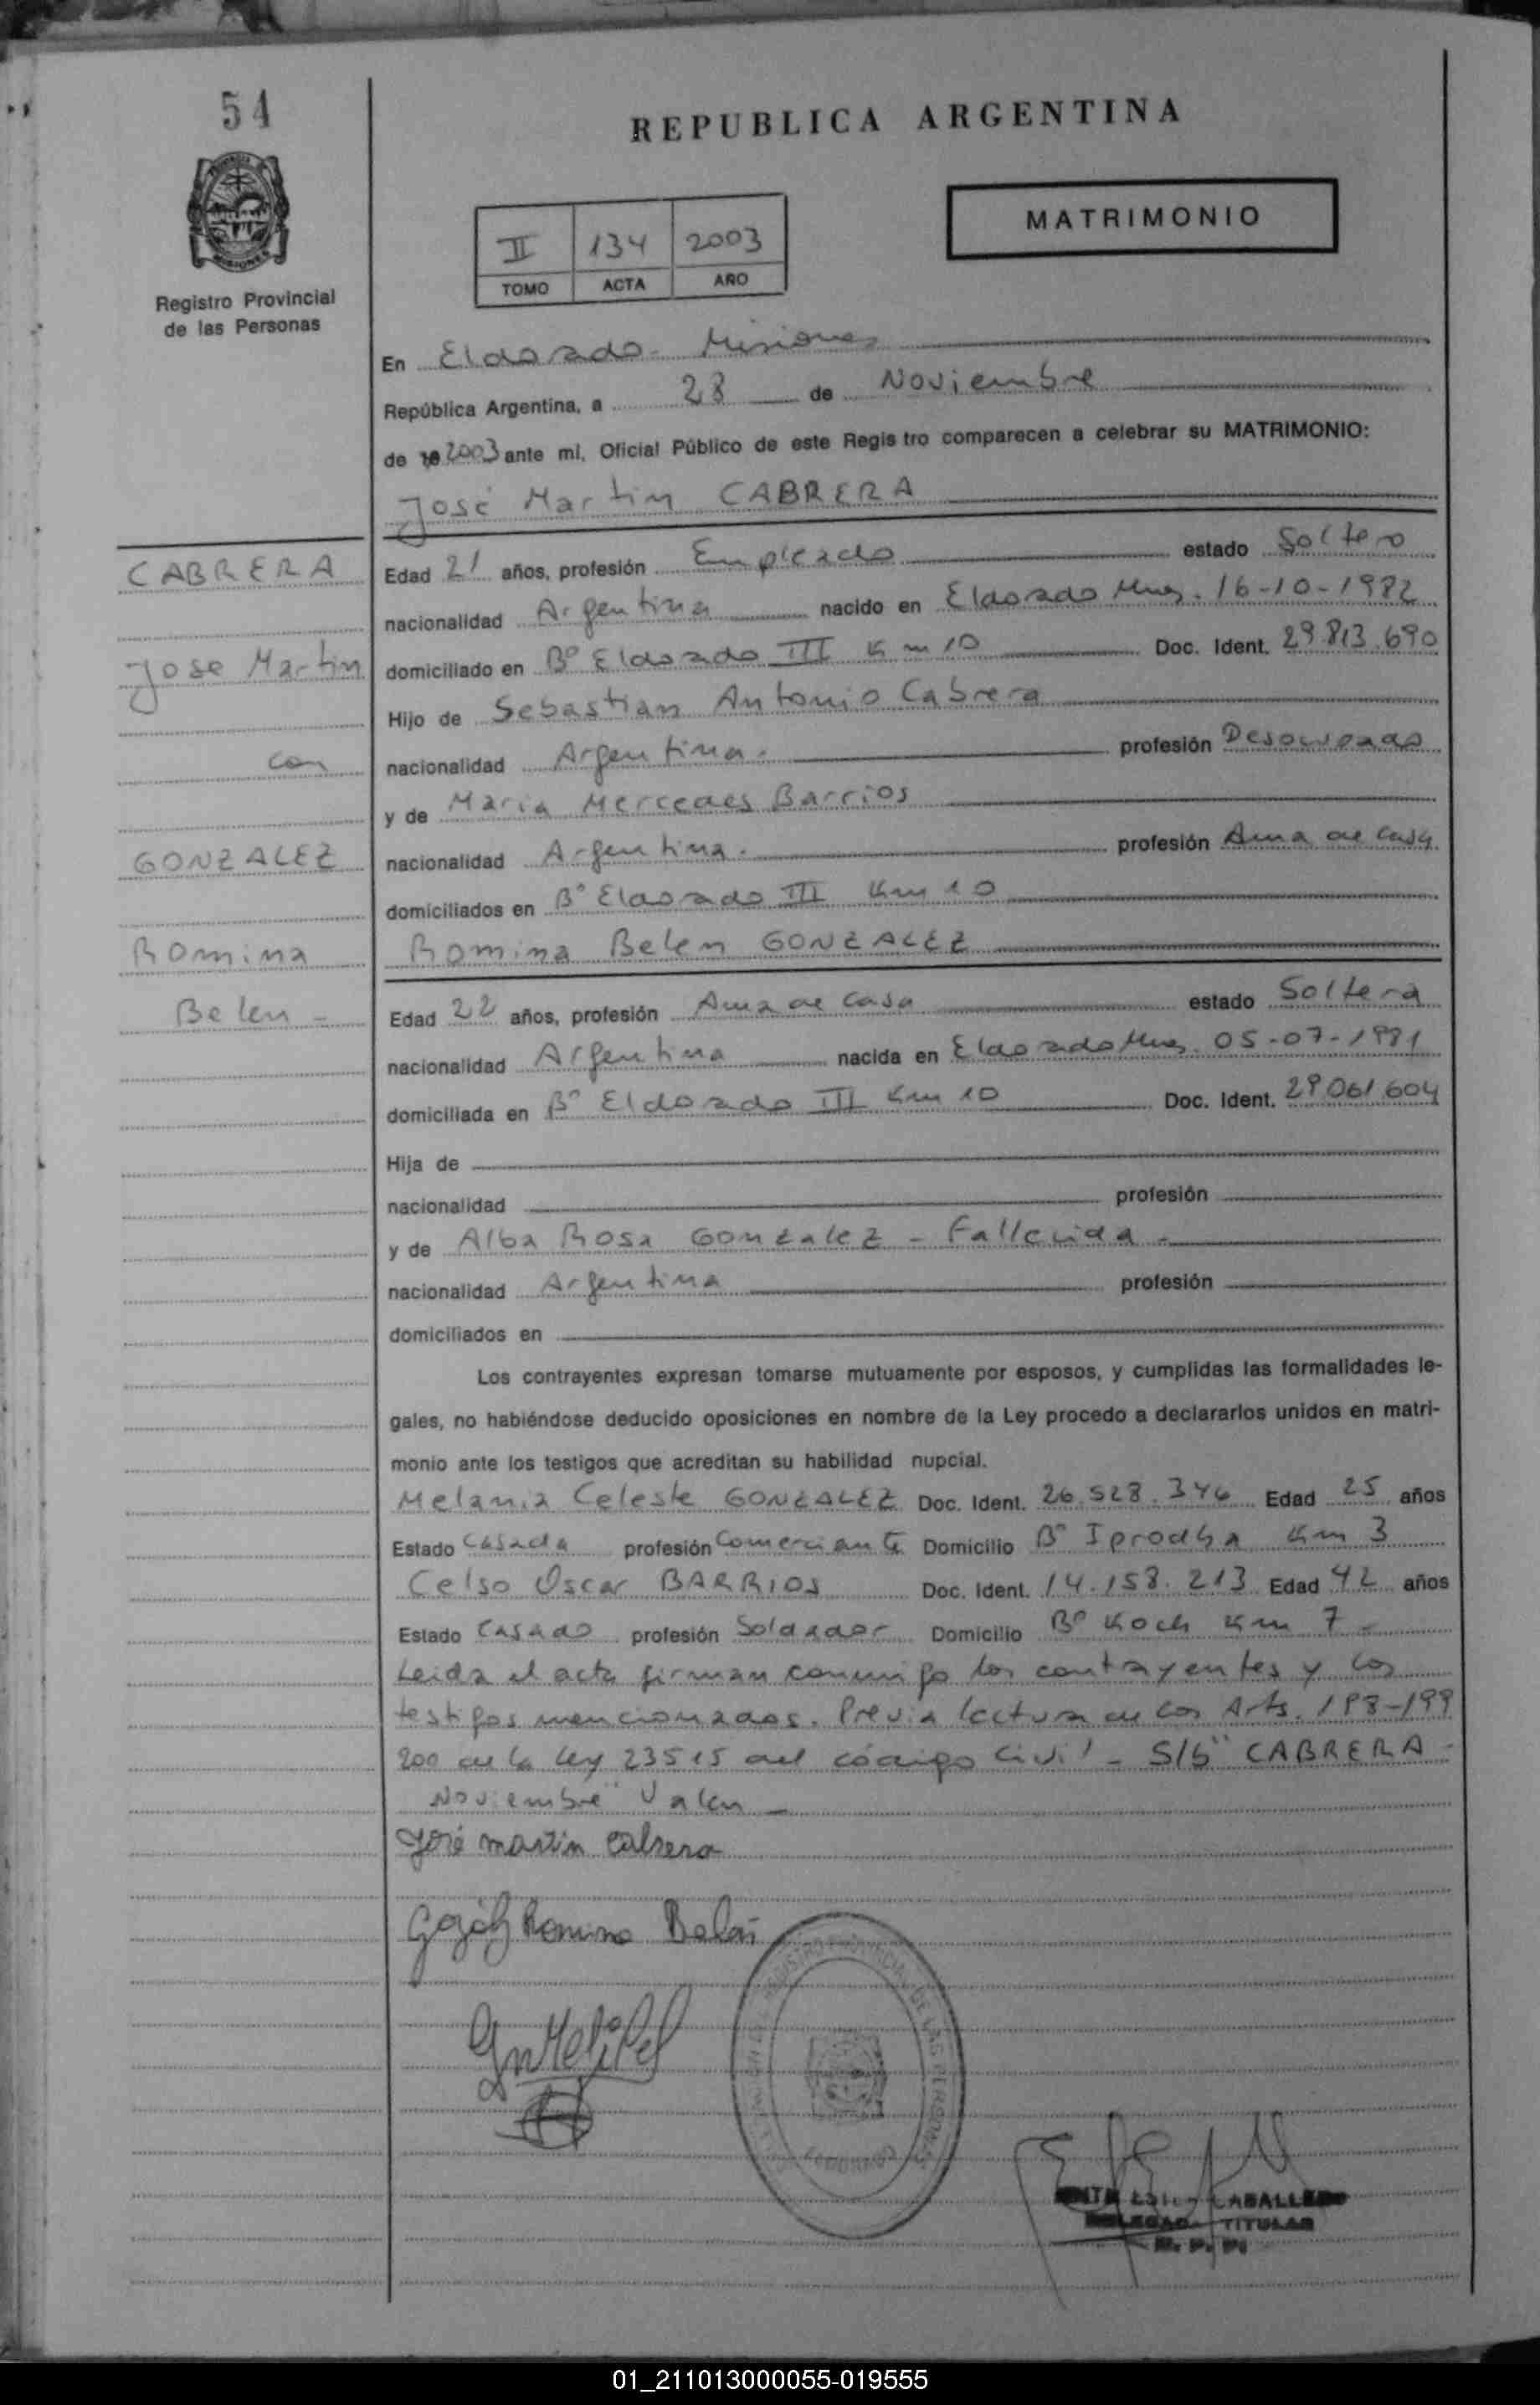 54
REPUBLICA ARGENTINA
MATRIMONIO
II 134 2003
TOMO ACTA AÑO
Registro Provincial
de las Personas
En Eldorado - Misiones
República Argentina, a 28 de Noviembre
de 19 2003 ante mi, Oficial Público de este Regis tro comparecen a celebrar su MATRIMONIO:
José Martin CABRERA
CABRERA
Jose Martin
con
GONZALEZ
Romina
Belen -
Edad 21 años, profesión Empleado estado Soltero
nacionalidad Argentina nacido en Eldorado Mnes. 16-10-1982
domiciliado en Bº Eldorado III Km 10 Doc. Ident. 29.813.690
Hijo de Sebastian Antonio Cabrera
nacionalidad Argentina. profesión Desocupado
y de Maria Mercedes Barrios
nacionalidad Argentina. profesión Ama de Casa
domiciliados en Bº Eldorado III Km 10
Romina Belen GONZALEZ
Edad 22 años, profesión Ama de Casa estado Soltera
nacionalidad Argentina nacida en Eldorado Mnes. 05-07-1981
domiciliada en Bº Eldorado III Km 10 Doc. Ident. 29.061.604
Hija de
nacionalidad profesión
y de Alba Rosa Gonzalez - Fallecida -
nacionalidad Argentina profesión
domiciliados en
Los contrayentes expresan tomarse mutuamente por esposos, y cumplidas las formalidades le-
gales, no habiéndose deducido oposiciones en nombre de la Ley procedo a declararlos unidos en matri-
monio ante los testigos que acreditan su habilidad nupcial.
Melania Celeste GONZALEZ Doc. Ident. 26.528.346 Edad 25 años
Estado Casada profesión Comerciante Domicilio Bº Iprodha Km 3
Celso Oscar BARRIOS Doc. Ident. 14.158.213 Edad 42 años
Estado Casado profesión Soldador Domicilio Bº Koch Km 7 -
Leida el acta firman conmigo los contrayentes y los
testigos mencionados. Previa lectura de los Arts. 198-199
200 de la ley 23515 del código Civil - S/b" CABRERA -
Noviembre" Valen -
José martin Cabrera
Romina Belén
CABALLERO
TITULAR
01_211013000055-019555